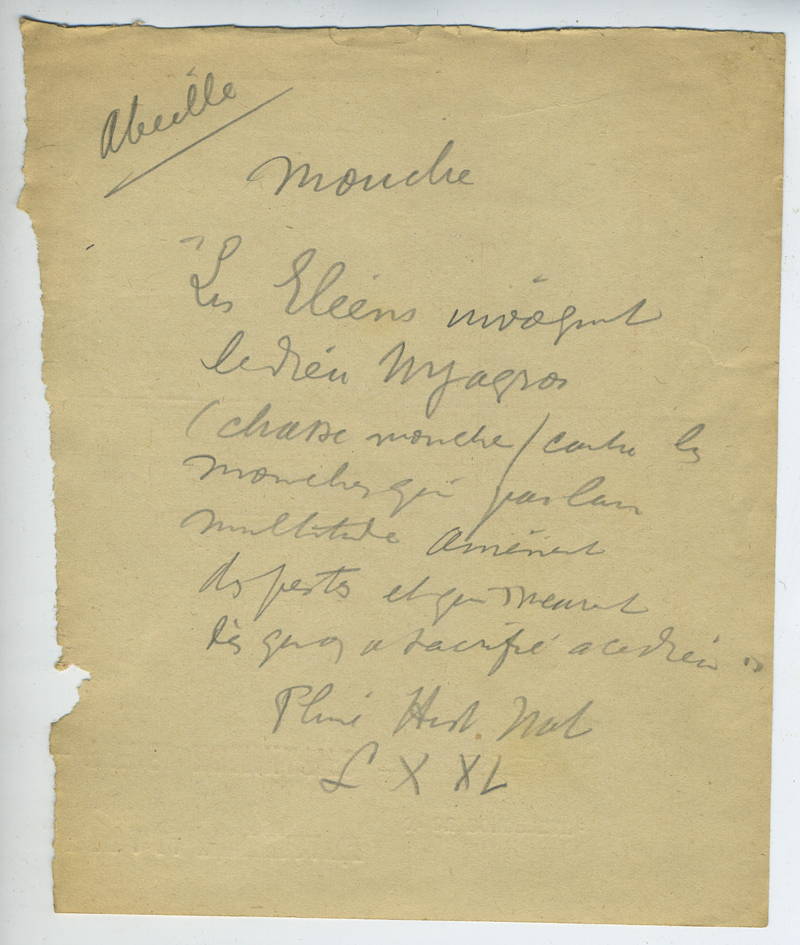 Abeille
Mouche
"Les Eléens invoquent
le dieu Myagros
(chasse mouche) contre les
mouches qui par leur
multitude amènent
des pestes et qui meurent
dès qu'on a sacrifié a ce dieu"
Pline Hist. Nat
L X XL